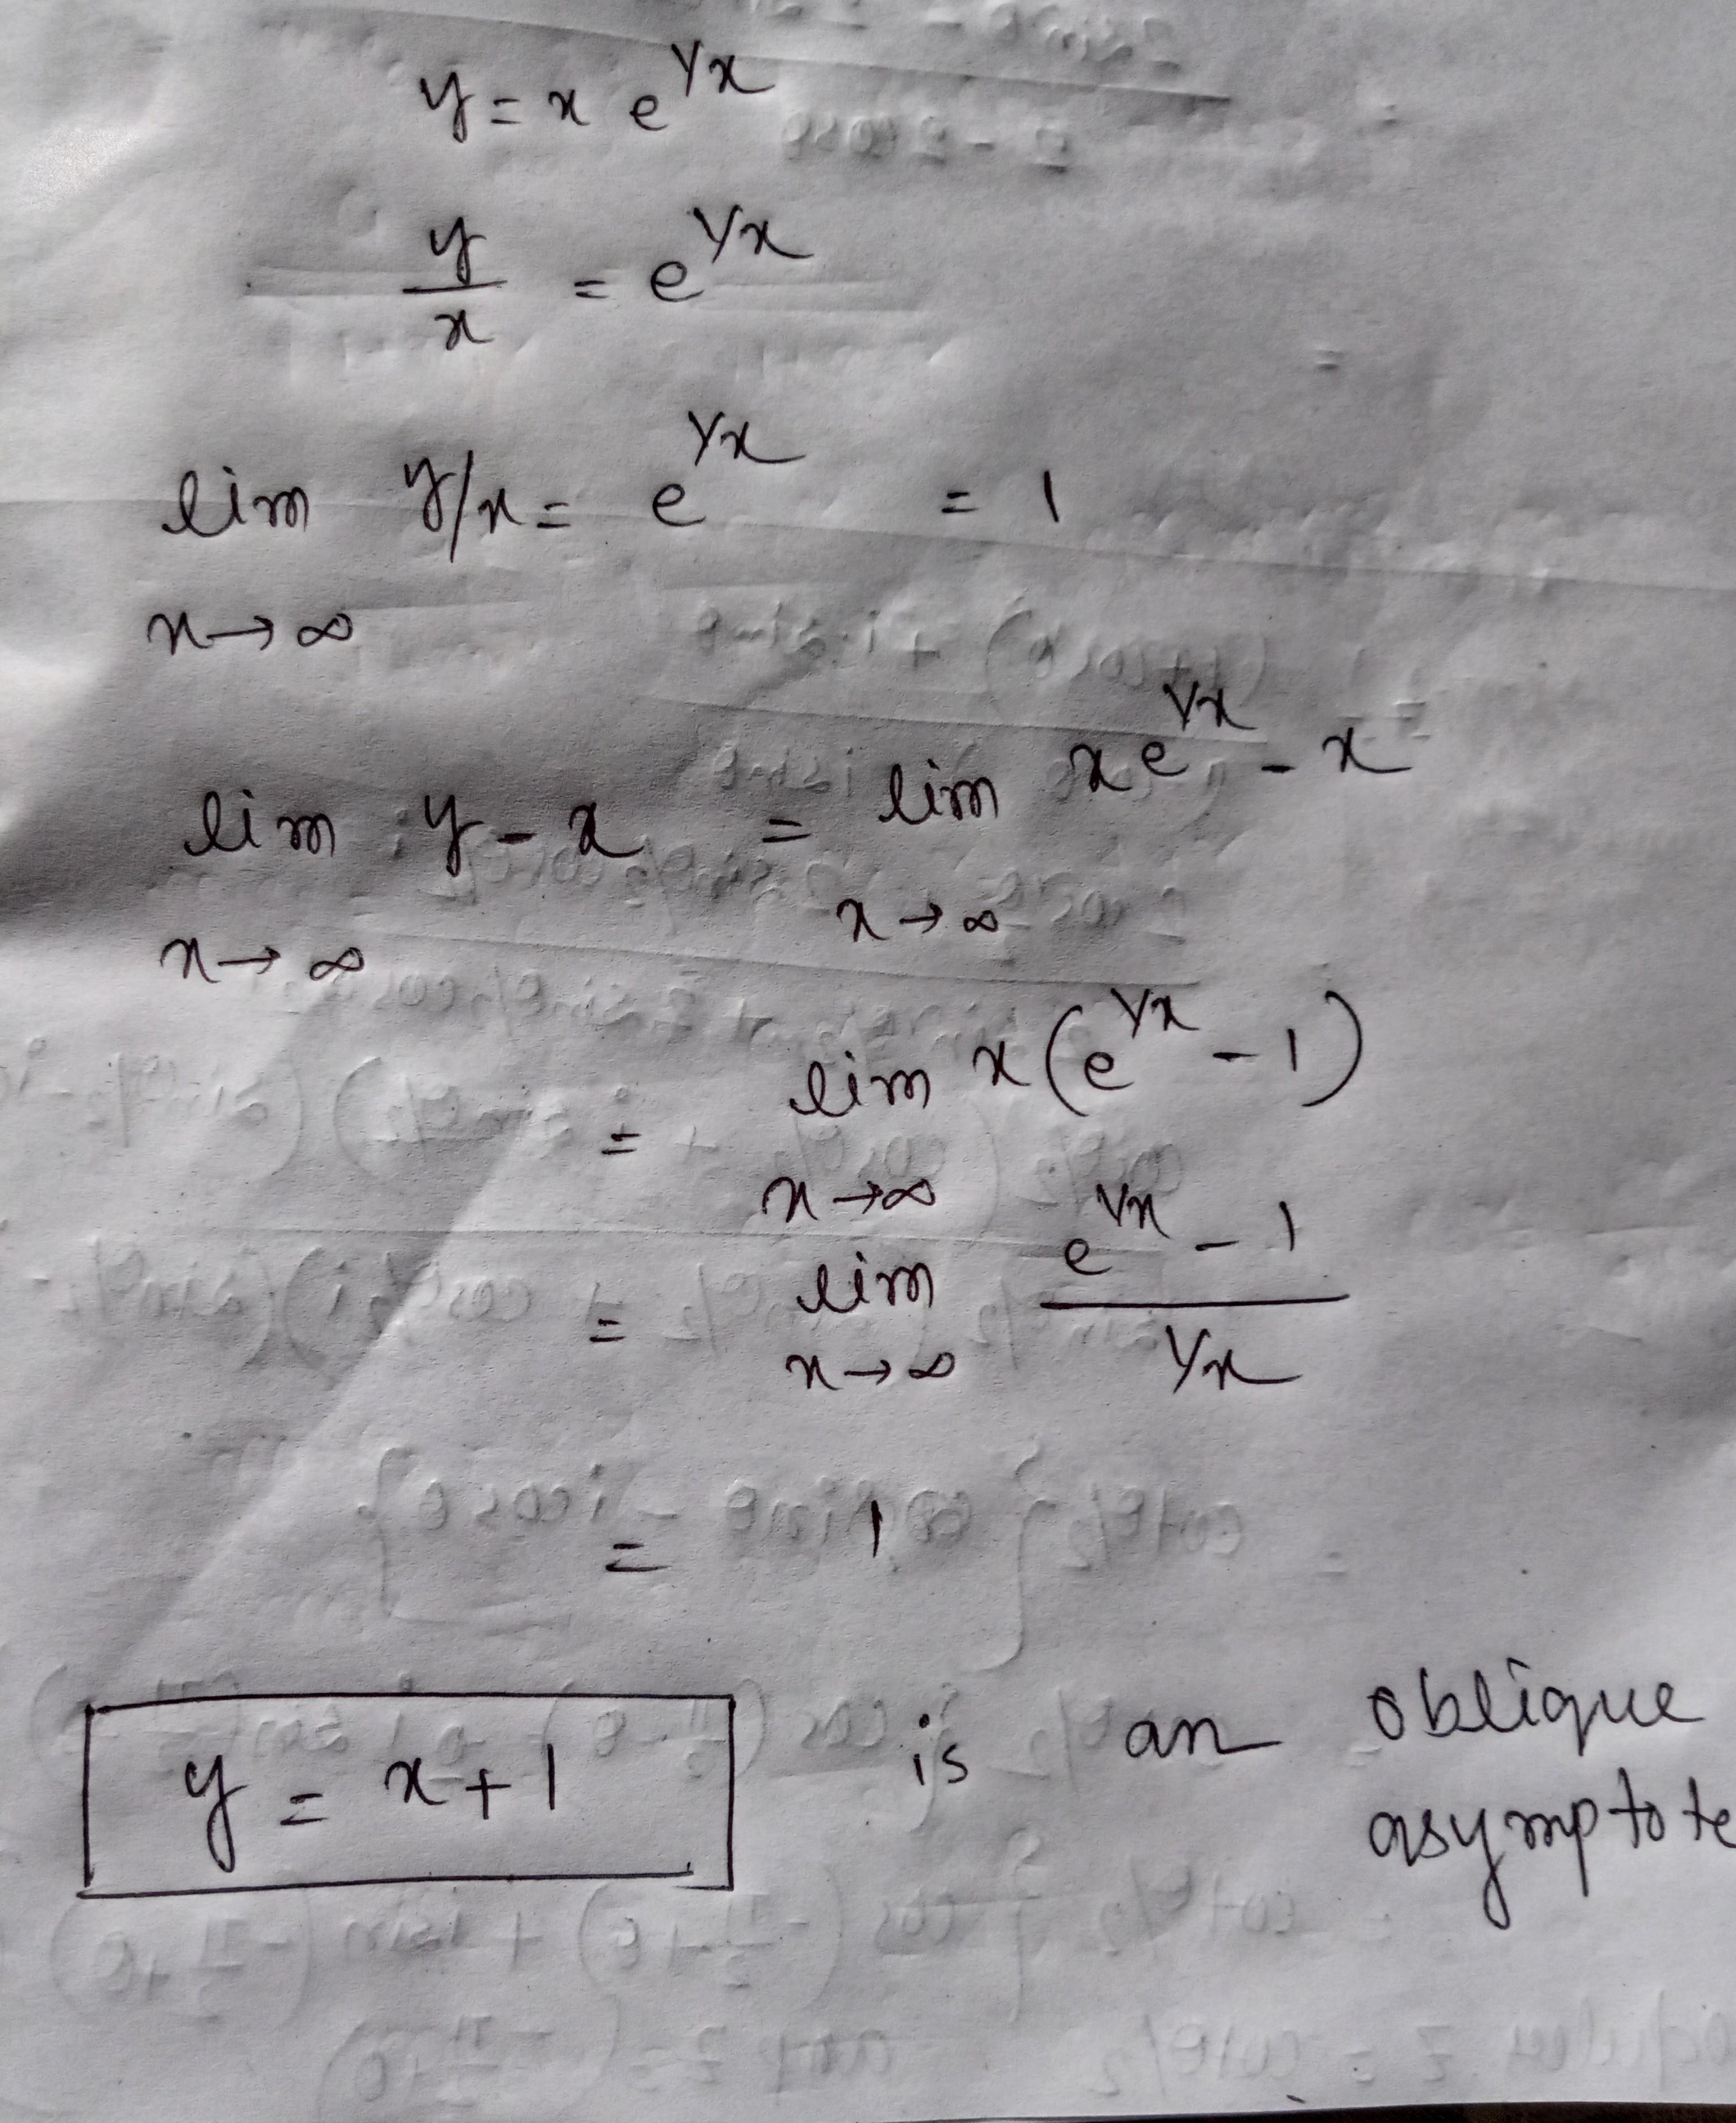 y = x e^1/x
y/x = e^1/x
lim y/x = e^1/x = 1
x→∞
lim y - x = lim xe^1/x - x
x→∞ x→∞
= lim x(e^1/x - 1)
x→∞
= lim (e^1/x - 1)/(1/x)
x→∞
= 1
y = x+1 is an oblique
asymptote